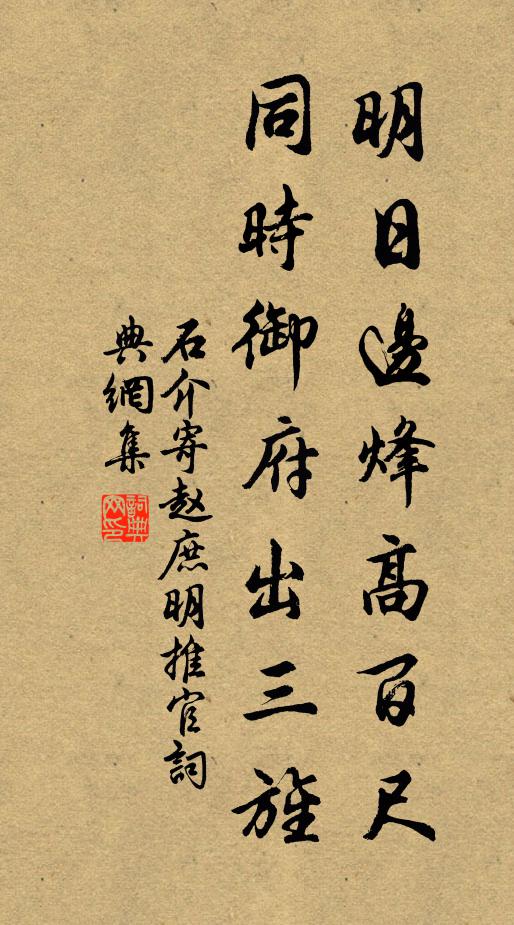 明日邊烽高百尺
同時御府出三旌
石介寄赵庶明推官詞
典網集
詞典
网印